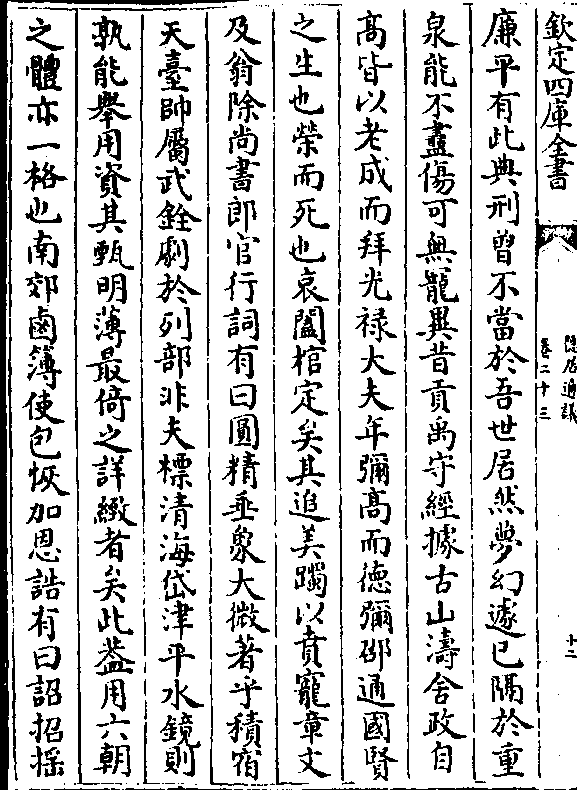 欽定四庫全書
隱居通議
卷二十三
十二
廉平有此典刑曾不當於吾世居然夢幻遽已隔於重
泉能不盡傷可無寵異昔貢禹守經據古山濤舍政自
高皆以老成而拜光禄大夫年彌高而德彌邵通國賢
之生也榮而死也哀闔棺定矣其追美躅以賁寵章文
及翁除尚書郎官行詞有曰圓精垂象大微著乎積宿
天臺帥屬武銓劇於列部非夫標清海岱津平水鏡則
孰能舉用資其甄明薄最倚之詳緻者矣此葢用六朝
之體亦一格也南郊鹵簿使包恢加恩誥有曰詔招揺